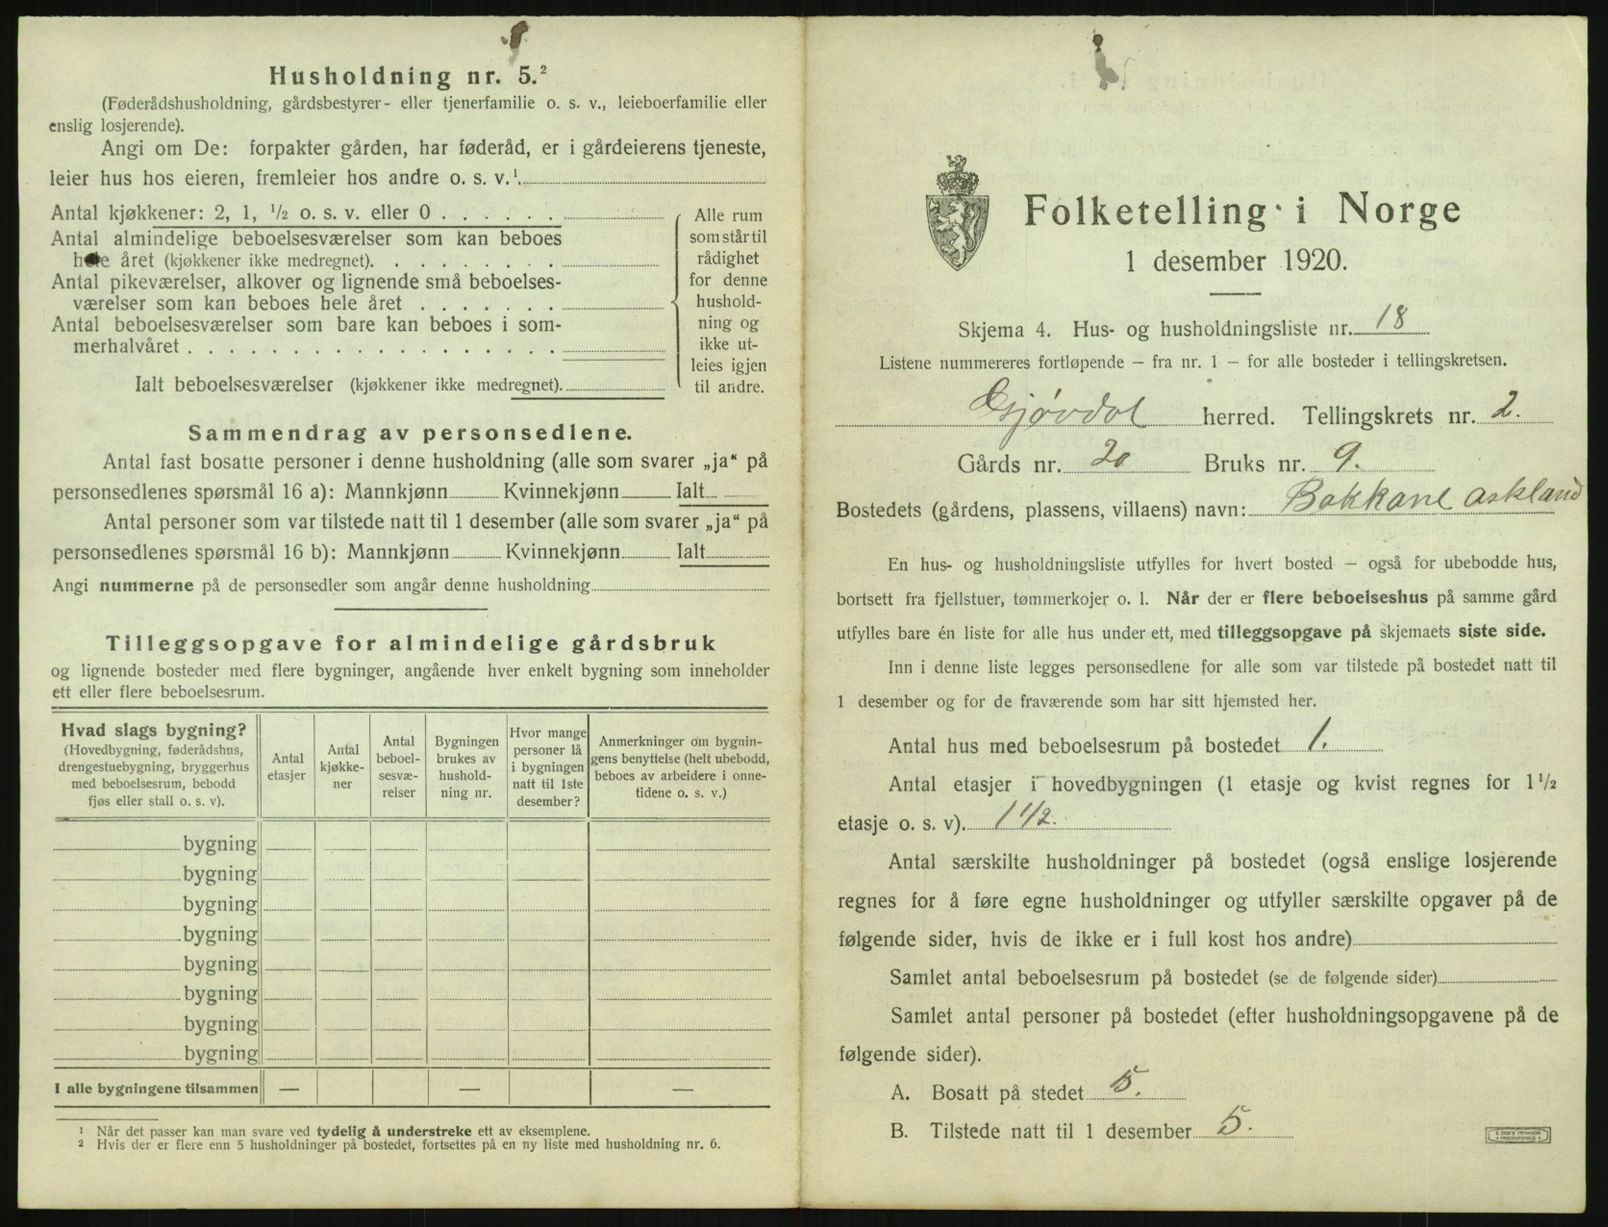 Husholdning nr. 5.²
(Føderådshusholdning, gårdsbestyrer- eller tjenerfamilie o. s. v., leieboerfamilie eller
enslig losjerende).
Angi om De: forpakter gården, har føderåd, er i gårdeierens tjeneste,
leier hus hos eieren, fremleier hos andre o. s. v.¹
Antal kjøkkener: 2, 1, ½ o. s. v. eller 0
Antal almindelige beboelsesværelser som kan beboes
hele året (kjøkkener ikke medregnet).
Antal pikeværelser, alkover og lignende små beboelses-
værelser som kan beboes hele året
Antal beboelsesværelser som bare kan beboes i som-
merhalvåret
Ialt beboelsesværelser (kjøkkener ikke medregnet).
Alle rum
som står til
rådighet
for denne
hushold-
ning og
ikke ut-
leies igjen
til andre.
Sammendrag av personsedlene.
Antal fast bosatte personer i denne husholdning (alle som svarer „ja“ på
personsedlenes spørsmål 16 a): Mannkjønn Kvinnekjønn Ialt
Antal personer som var tilstede natt til 1 desember (alle som svarer „ja“ på
personsedlenes spørsmål 16 b): Mannkjønn Kvinnekjønn Ialt
Angi nummerne på de personsedler som angår denne husholdning
Tilleggsopgave for almindelige gårdsbruk
og lignende bosteder med flere bygninger, angående hver enkelt bygning som inneholder
ett eller flere beboelsesrum.
Hvad slags bygning?
(Hovedbygning, føderådshus,
drengestuebygning, bryggerhus
med beboelsesrum, bebodd
fjøs eller stall o. s. v).
Antal
etasjer
Antal
kjøkke-
ner
Antal
beboel-
sesvæ-
relser
Bygningen
brukes av
hushold-
ning nr.
Hvor mange
personer lå
i bygningen
natt til 1ste
desember?
Anmerkninger om bygnin-
gens benyttelse (helt ubebodd,
beboes av arbeidere i onne-
tidene o. s. v.)
bygning
bygning
bygning
bygning
bygning
bygning
bygning
bygning
I alle bygningene tilsammen — — —
¹ Når det passer kan man svare ved tydelig å understreke ett av eksemplene.
² Hvis der er flere enn 5 husholdninger på bostedet, fortsettes på en ny liste med husholdning nr. 6.
Folketelling i Norge
1 desember 1920.
Skjema 4. Hus- og husholdningsliste nr. 18
Listene nummereres fortløpende — fra nr. 1 — for alle bosteder i tellingskretsen.
Gjøvdal herred. Tellingskrets nr. 2.
Gårds nr. 20 Bruks nr. 9.
Bostedets (gårdens, plassens, villaens) navn: Bakkane Askland
En hus- og husholdningsliste utfylles for hvert bosted — også for ubebodde hus,
bortsett fra fjellstuer, tømmerkojer o. l. Når der er flere beboelseshus på samme gård
utfylles bare én liste for alle hus under ett, med tilleggsopgave på skjemaets siste side.
Inn i denne liste legges personsedlene for alle som var tilstede på bostedet natt til
1 desember og for de fraværende som har sitt hjemsted her.
Antal hus med beboelsesrum på bostedet 1.
Antal etasjer i hovedbygningen (1 etasje og kvist regnes for 1½
etasje o. s. v). 1½.
Antal særskilte husholdninger på bostedet (også enslige losjerende
regnes for å føre egne husholdninger og utfyller særskilte opgaver på de
følgende sider, hvis de ikke er i full kost hos andre)
Samlet antal beboelsesrum på bostedet (se de følgende sider)
Samlet antal personer på bostedet (efter husholdningsopgavene på de
følgende sider).
A. Bosatt på stedet 5.
B. Tilstede natt til 1 desember 5.